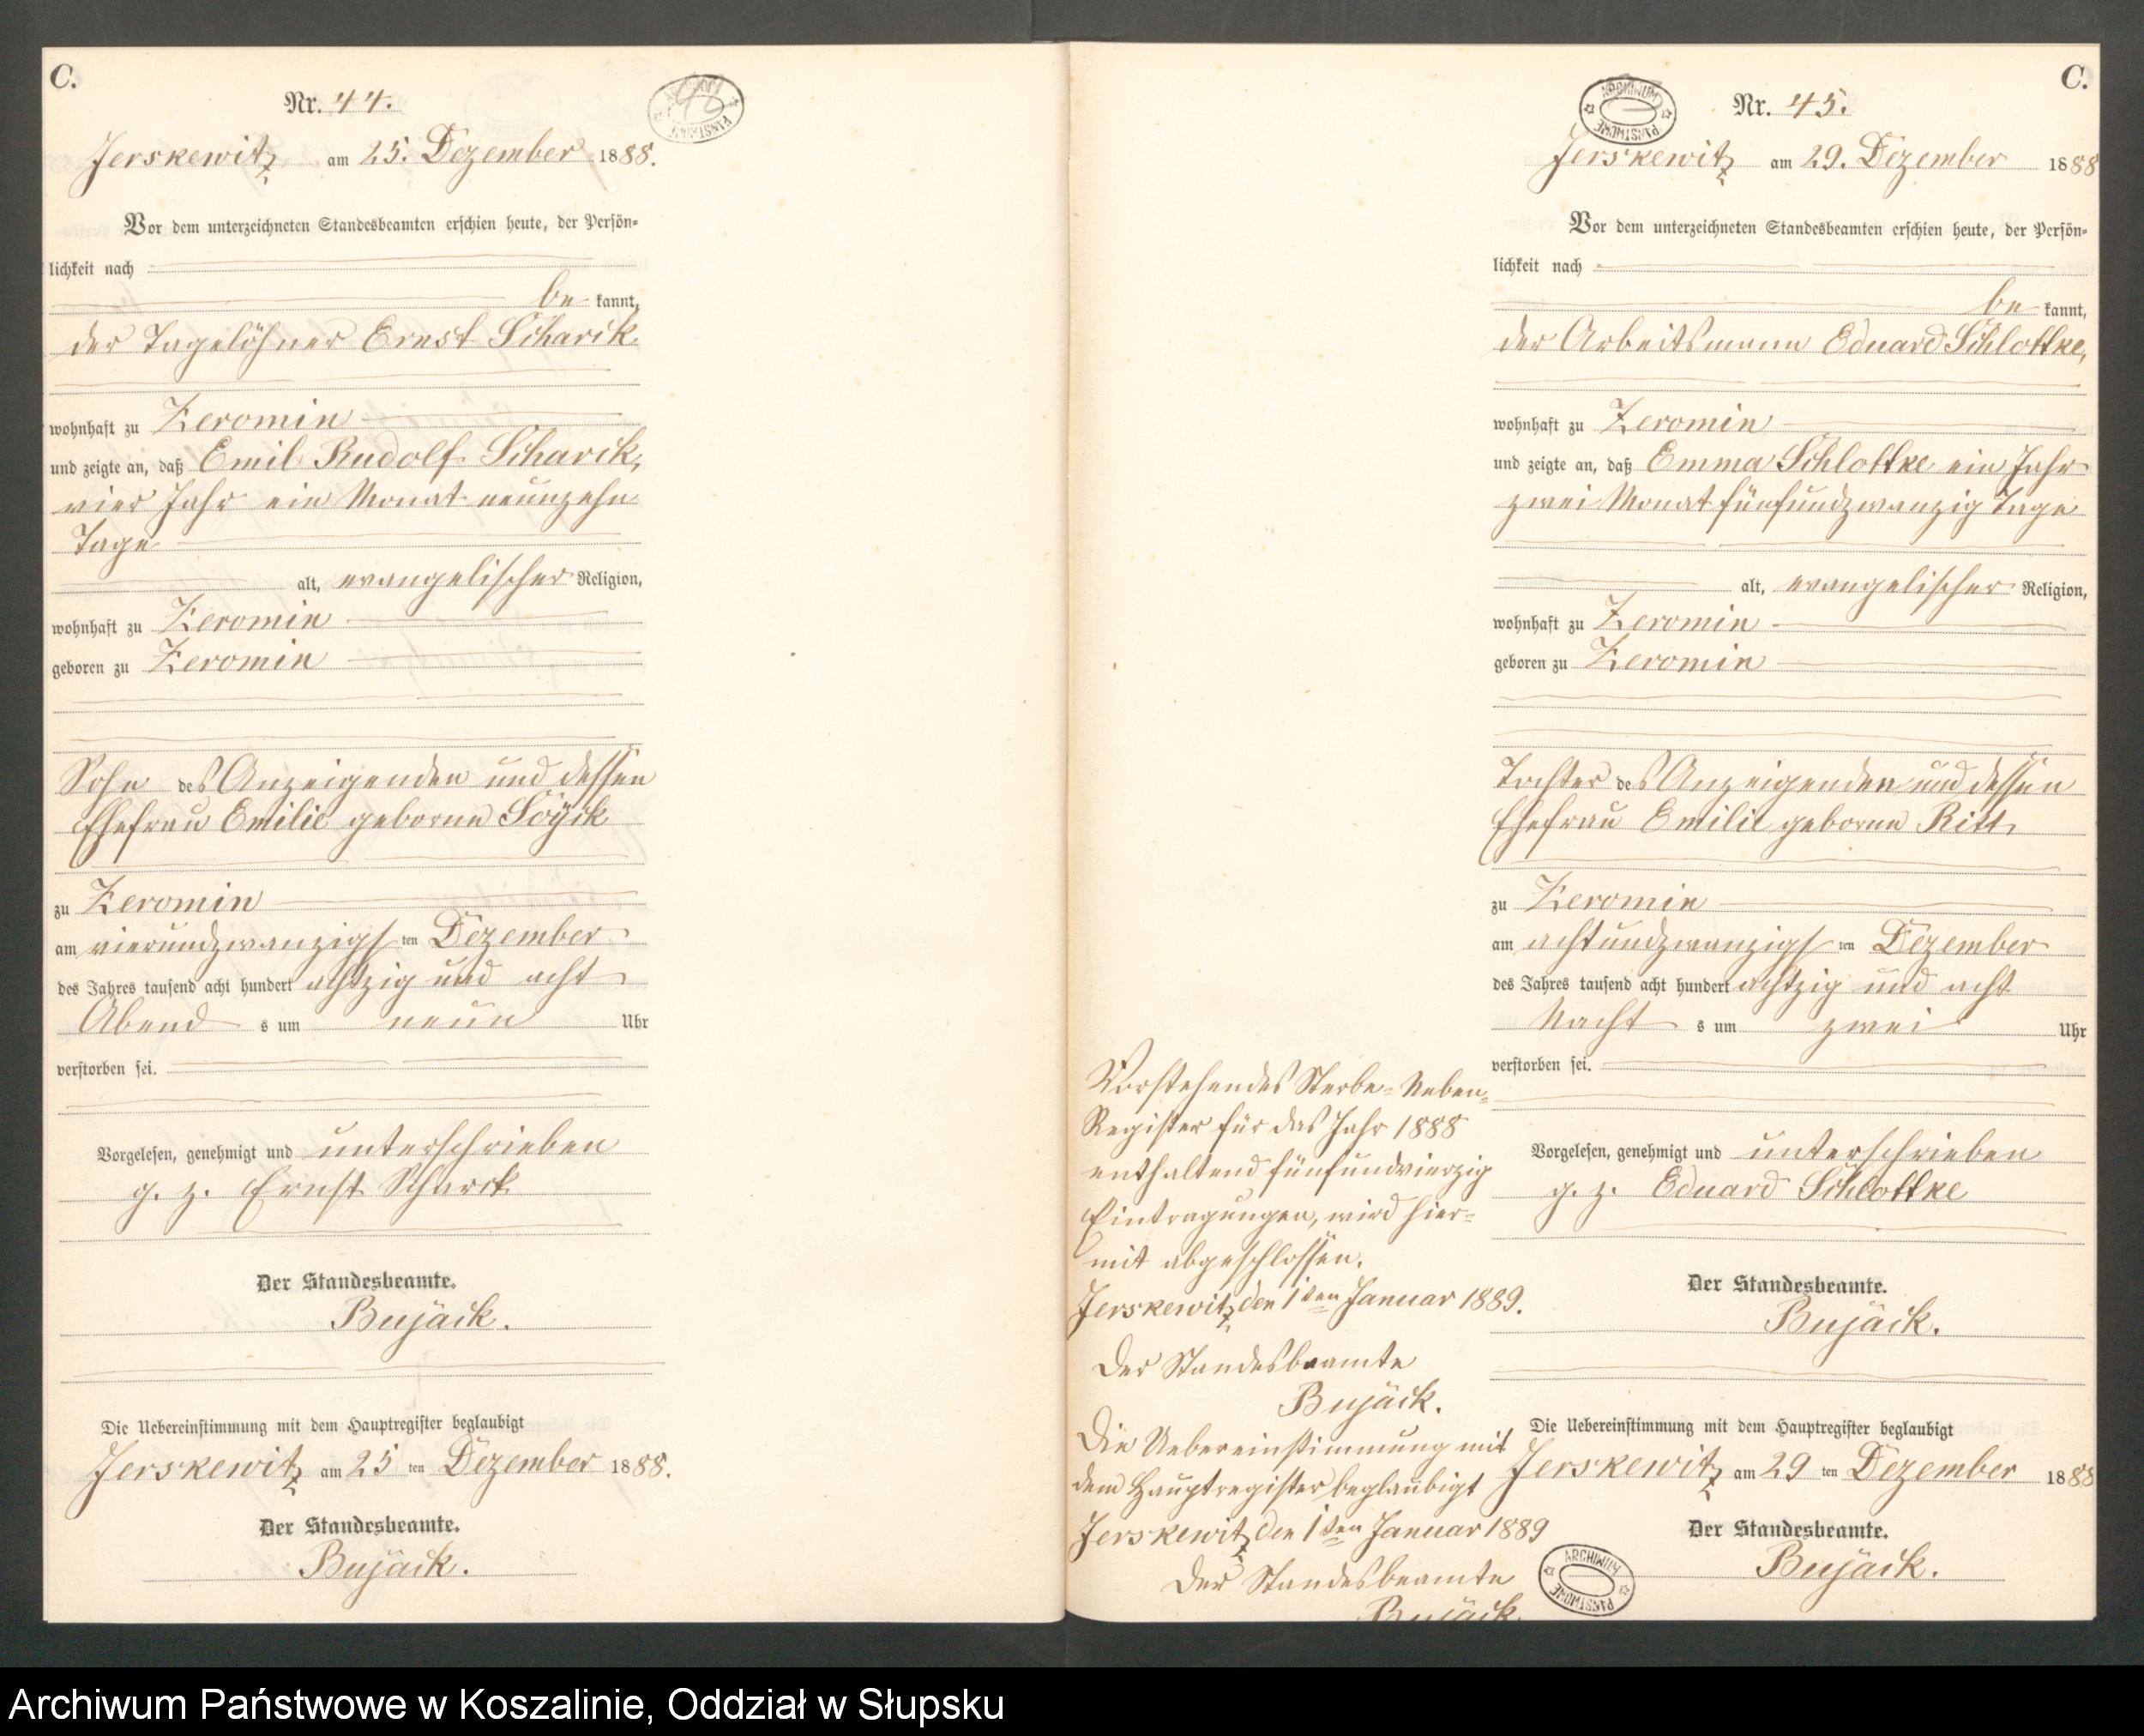 C.
Nr. 44.
Jerskewitz am 25. Dezember 1888.
Vor dem unterzeichneten Standesbeamten erschien heute, der Persön-
lichkeit nach
be kannt,
der Tagelöhner Ernst Scharck
wohnhaft zu Zeromin
und zeigte an, daß Emil Rudolf Scharck,
vier Jahr ein Monat neunzehn
Tage
alt, evangelischer Religion,
wohnhaft zu Zeromin
geboren zu Zeromin
Sohn des Anzeigenden und dessen
Ehefrau Emilie geborne
zu Zeromin
am vierundzwanzigsten Dezember
des Jahres tausend acht hundert achtzig und acht
Abend s um neun Uhr
verstorben sei.
Vorgelesen, genehmigt und unterschrieben
g. z. Ernst Scharck
Der Standesbeamte.
Bujäck.
Die Uebereinstimmung mit dem Hauptregister beglaubigt
Jerskewitz am 25 ten Dezember 1888.
Der Standesbeamte.
Bujäck.
C.
ARCHIWUM PAŃSTWOWE
Nr. 45.
Jerskewitz am 29. Dezember 1888
Vor dem unterzeichneten Standesbeamten erschien heute, der Persön-
lichkeit nach
be kannt,
der Arbeitsmann Eduard Schlottke,
wohnhaft zu Zeromin
und zeigte an, daß Emma Schlottke ein Jahr
zwei Monat fünfundzwanzig Tage
alt, evangelischer Religion,
wohnhaft zu Zeromin
geboren zu Zeromin
Tochter des Anzeigenden und dessen
Ehefrau Emilie geborne Ritt
zu Zeromin
am achtundzwanzigsten Dezember
des Jahres tausend acht hundert achtzig und acht
Nacht s um zwei Uhr
verstorben sei.
Vorgelesen, genehmigt und unterschrieben
g. z. Eduard Schlottke
Der Standesbeamte.
Bujäck.
Die Uebereinstimmung mit dem Hauptregister beglaubigt
Jerskewitz am 29 ten Dezember 1888
Der Standesbeamte.
Bujäck.
Vorstehendes Sterbe-Neben-
Register für das Jahr 1888
enthaltend fünfundvierzig
Eintragungen, wird hier-
mit abgeschlossen.
Jerskewitz, den 1ten Januar 1889.
Der Standesbeamte
Bujäck.
Die Uebereinstimmung mit
dem Hauptregister beglaubigt
Jerskewitz den 1ten Januar 1889
Der Standesbeamte
Bujäck.
ARCHIWUM PAŃSTWOWE
Archiwum Państwowe w Koszalinie, Oddział w Słupsku